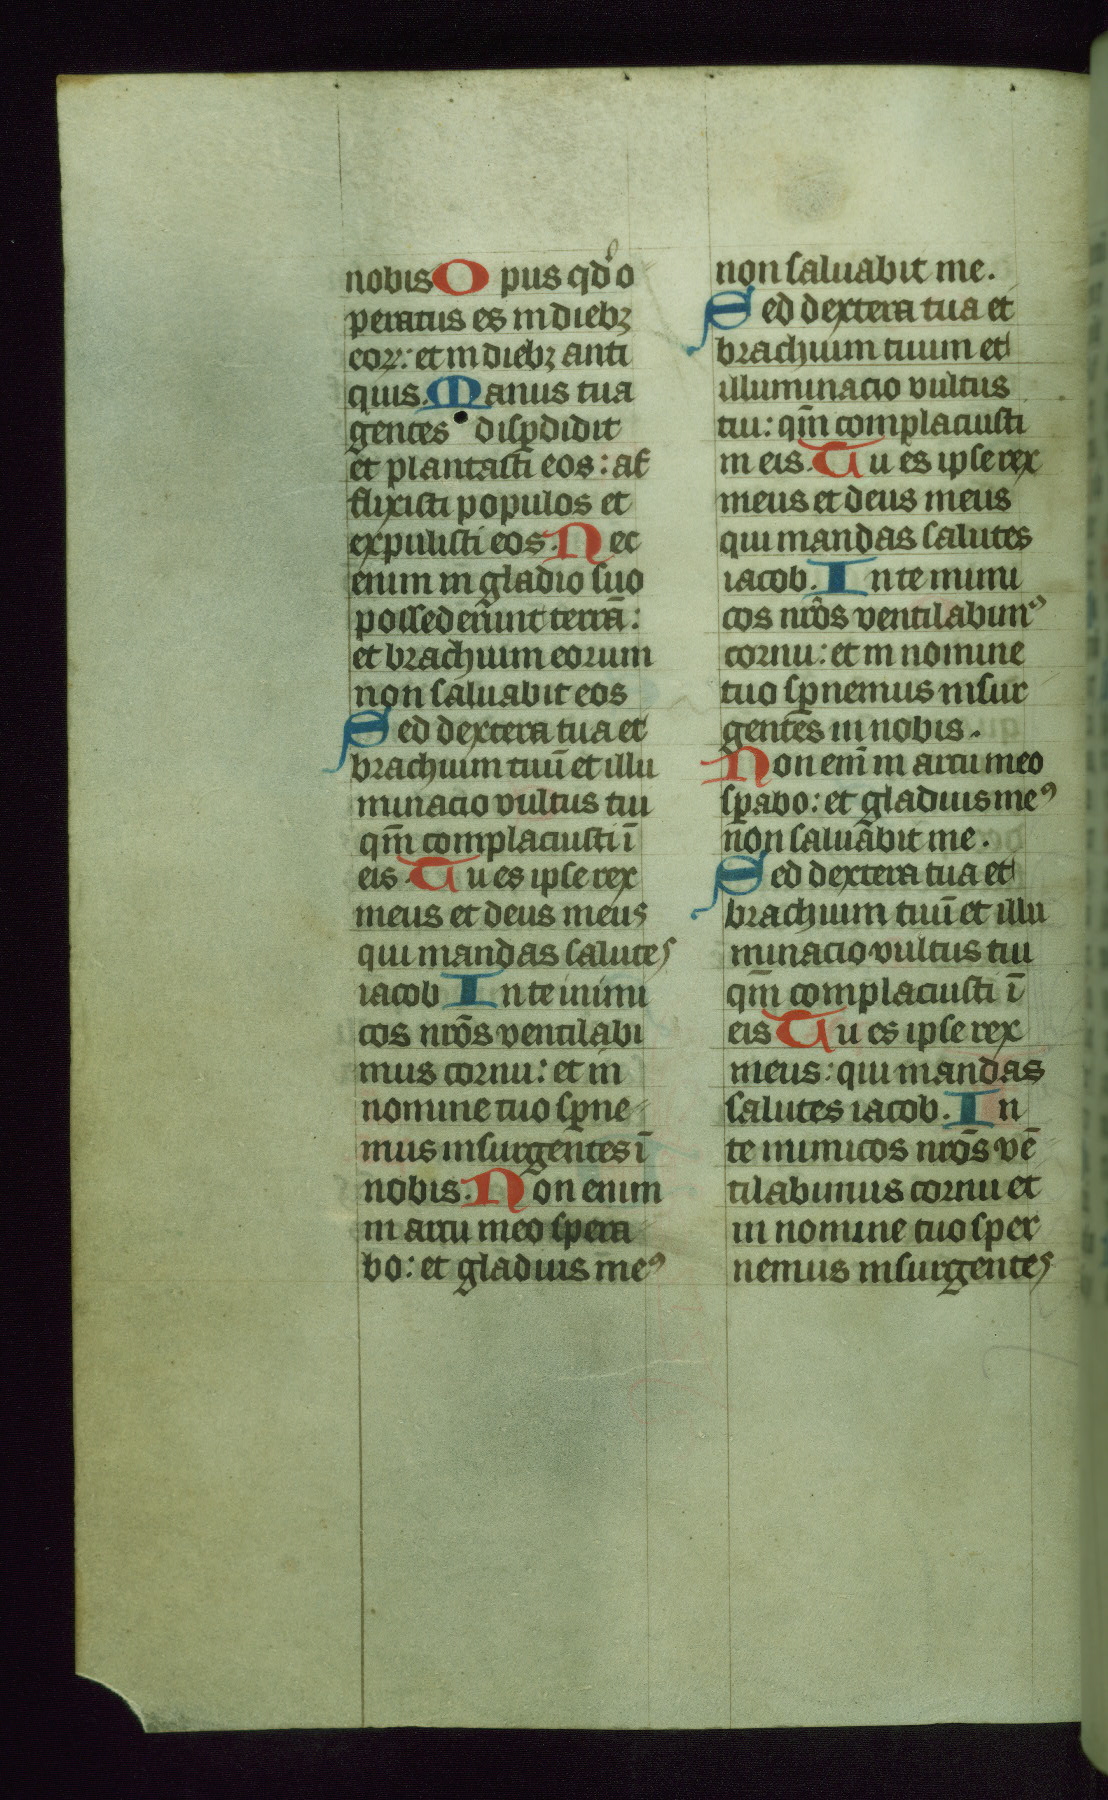 nobis O pus qdo
peratus es in diebꝫ
eoꝝ: et in diebꝫ anti
quis. Manus tua
gentes disꝑdidit
et plantasti eos: af
flixisti populos et
expulisti eos. Nec
enim in gladio suo
possederūnt terrā:
et brachium eorum
non saluabit eos
Sed dextera tua et
brachium tuū et illu
minacio vultus tui
qm̄ complacuisti ī
eis. Tu es ipse rex
meus et deus meus
qui mandas salutes
iacob In te inimi
cos nr̄os ventilabi
mus cornu: et in
nomine tuo sꝑne
mus insurgentes ī
nobis. Non enim
in arcu meo spera
bo: et gladius meꝰ
non saluabit me.
Sed dextera tua et
brachium tuum et
illuminacio vultus
tui: qm̄ complacuisti
in eis. Tu es ipse rex
meus et deus meus
qui mandas salutes
iacob. In te inimi
cos nr̄os ventilabimꝰ
cornu: et in nomine
tuo sꝑnemus insur
gentes in nobis.
Non enī in arcu meo
sꝑabo: et gladius meꝰ
non saluabit me.
Sed dextera tua et
brachium tuū et illu
minacio vultus tui
qm̄ complacuisti ī
eis Tu es ipse rex
meus: qui mandas
salutes iacob. In
te inimicos nr̄os vē
tilabimus cornu et
in nomine tuo sper
nemus insurgentes